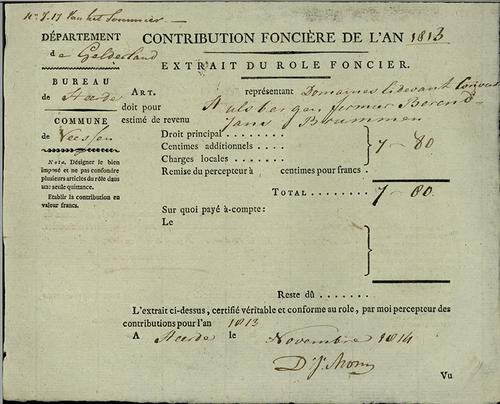 N.º 7.17 Van het Sommier
DÉPARTEMENT
de Gelderland
BUREAU
de Heerde
COMMUNE
de Veessen
Nota. Désigner le bien
imposé et ne pas confondre
plusieurs articles du rôle dans
une seule quittance.
Etablir la contribution en
valeur francs.
CONTRIBUTION FONCIÈRE DE L'AN 1813
EXTRAIT DU ROLE FONCIER.
ART. représentant Domaines cidevant Convent
doit pour Hulsbergen fermier Berend
estimé de revenu Jans Brummen
Droit principal . . . . . . . .
Centimes additionnels . . . . 7 - 80
Charges locales . . . . . . .
Remise du percepteur à centimes pour francs .
TOTAL . . . . . . . 7 - 80
Sur quoi payé à-compte:
Le
Reste dû . . . . . . .
L'extrait ci-dessus, certifié véritable et conforme au role, par moi percepteur des
contributions pour l'an 1813
A Heerde le Novembre 1814
Vu